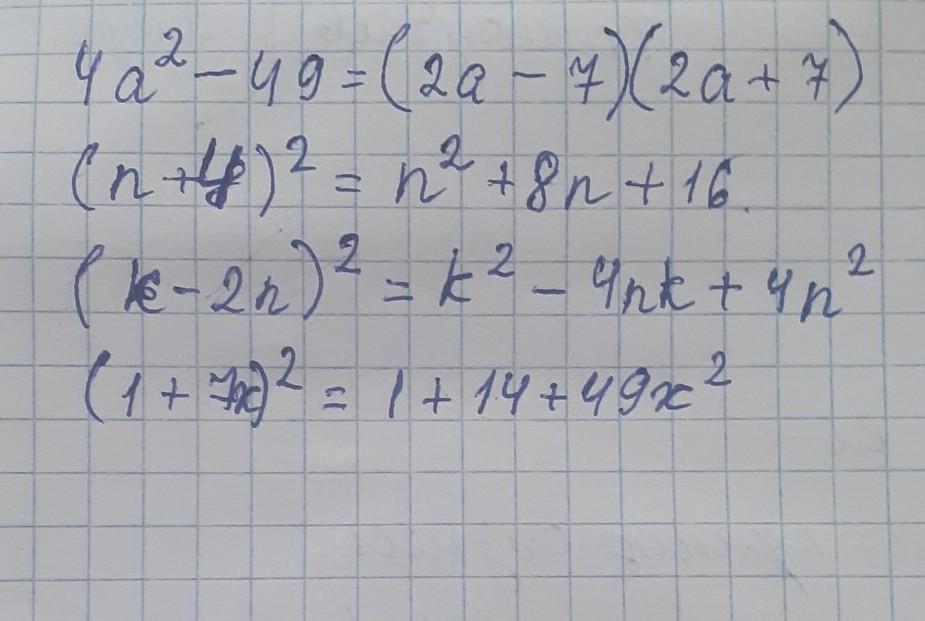 4a² - 49 = (2a - 7)(2a + 7)
(n + 4)² = n² + 8n + 16.
(k - 2n)² = k² - 4nk + 4n²
(1 + 7x)² = 1 + 14 + 49x²